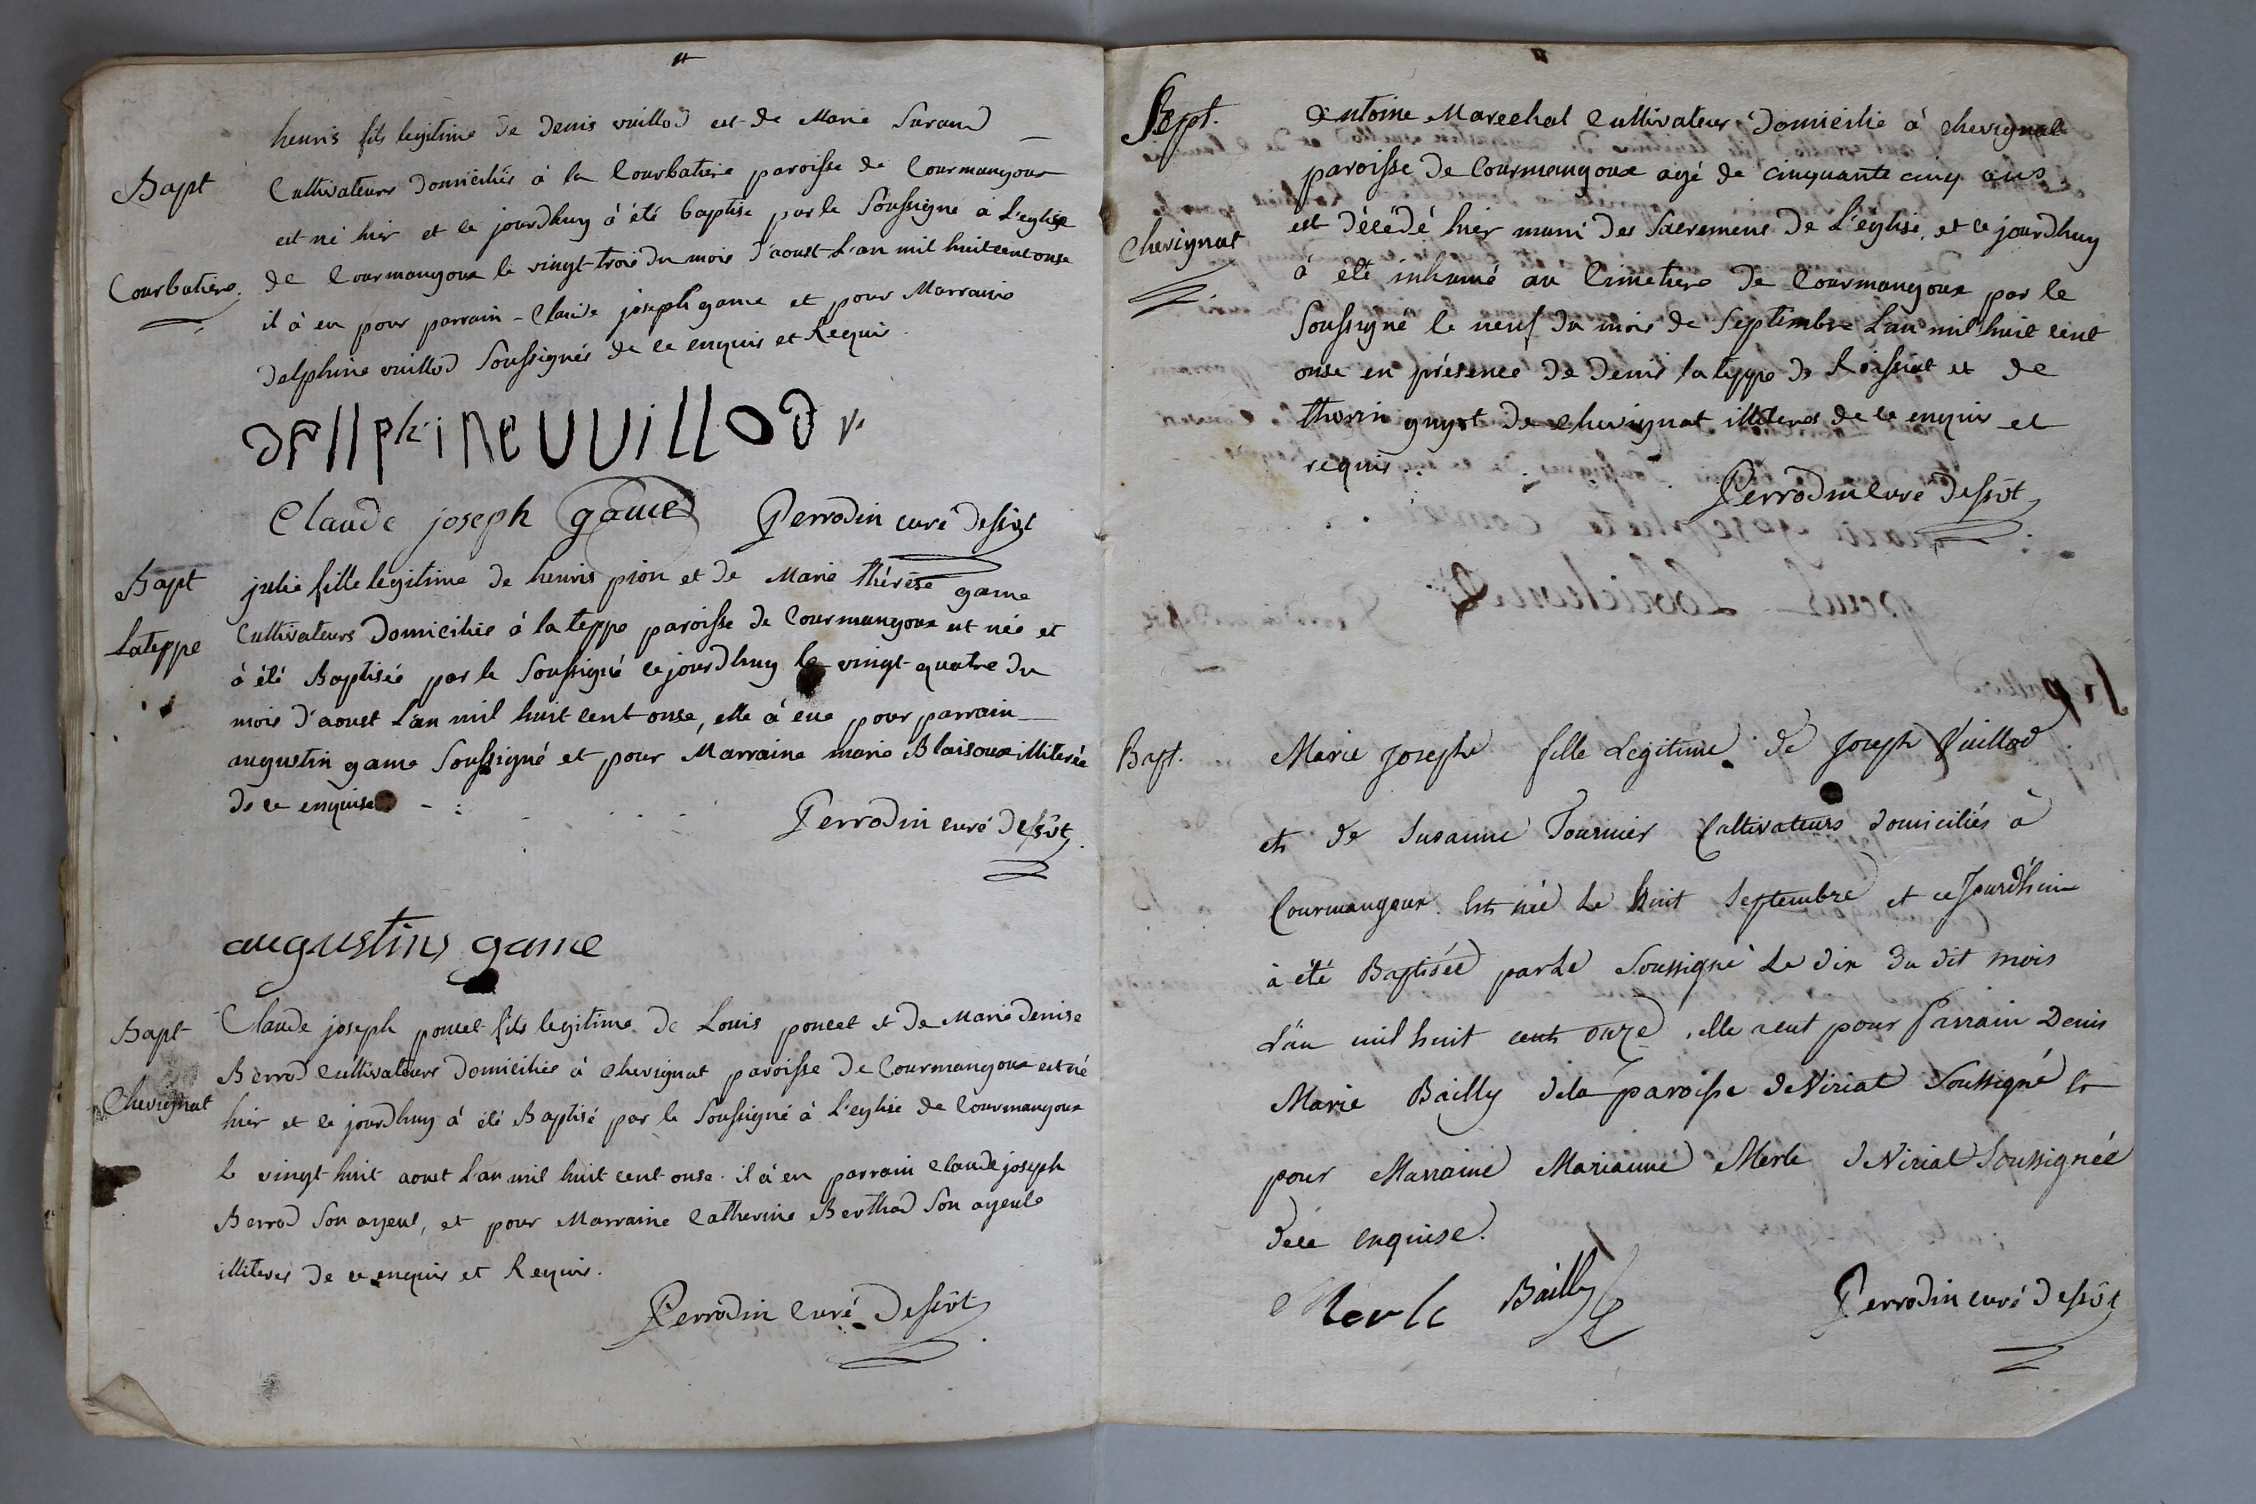 Bapt
Courbatiere.
henris fils legitime de denis vuillod et de Marie Suraud
Cultivateurs domiciliés à la Courbatiere paroisse de Courmangoux
est né hier et ce jourdhuy à été baptisé par le Soussigné à L'eglise
de Courmangoux le vingt-trois du mois d'aoust L'an mil huit cent onse
il à eu pour parrain - Claude joseph game et pour Marraine
delphine vuillod Soussignés de ce enquis et Requis.
dellphine vuillod
Claude joseph game Perrodin curé dessvt
Bapt
Lateppe
julie fille legitime de henris pion et de Marie thérèse game
Cultivateurs domiciliés à la teppe paroisse de Courmangoux est née et
à été Baptisée par le Soussigné ce jourdhuy le vingt-quatre du
mois d'aoust L'an mil huit cent onse, elle à eue pour parrain
augustin game Soussigné et pour Marraine marie Blaisoux illiterée
de ce enquise
Perrodin curé dessvt
augustins game
Bapt
Chevignat
Claude joseph poncet fils legitime de Louis poncet et de Marie denise
Berrod Cultivateurs domiciliés à Chevignat paroisse de Courmangoux est né
hier et ce jourdhuy à été Baptisé par le Soussigné à L'eglise de Courmangoux
le vingt huit aoust L'an mil huit cent onse. il à eu parrain Claude joseph
Berrod Son ayeul, et pour Marraine Catherine Berthod Son ayeule
illiteres de ce enquis et Requis.
Perrodin Curé dessvt
Sept.
Chevignat
Antoine Marechal Cultivateur domicilié à Chevignat
paroisse de Courmangoux agé de cinquante cinq ans
est décédé hier muni des Sacremens de L'église, et ce jourdhuy
à été inhumé au Cimetiere de Courmangoux par le
Soussigné le neuf du mois de Septembre L'an mil huit cent
onse en présence de denis lateppe de Roissiat et de
thorin guyot de Chevignat illiteres de ce enquis et
requis.
Perrodin Curé dessvt
Bapt.
Marie Joseph fille Légitime de Joseph Vuillod
et de Susanne Tournier Cultivateurs domiciliés à
Courmangoux. Est née Le huit Septembre et ce Jourd'huie
à été Baptisée par Le Soussigné Le dix du dit mois
L'an mil huit cent onze, elle a eut pour Parrain Denis
Marie Bailly de la paroisse de Viriat Soussigné et
pour Marraine Marianne Merle de Viriat Soussignée
de ce enquise.
Merle Bailly Perrodin curé dessvt